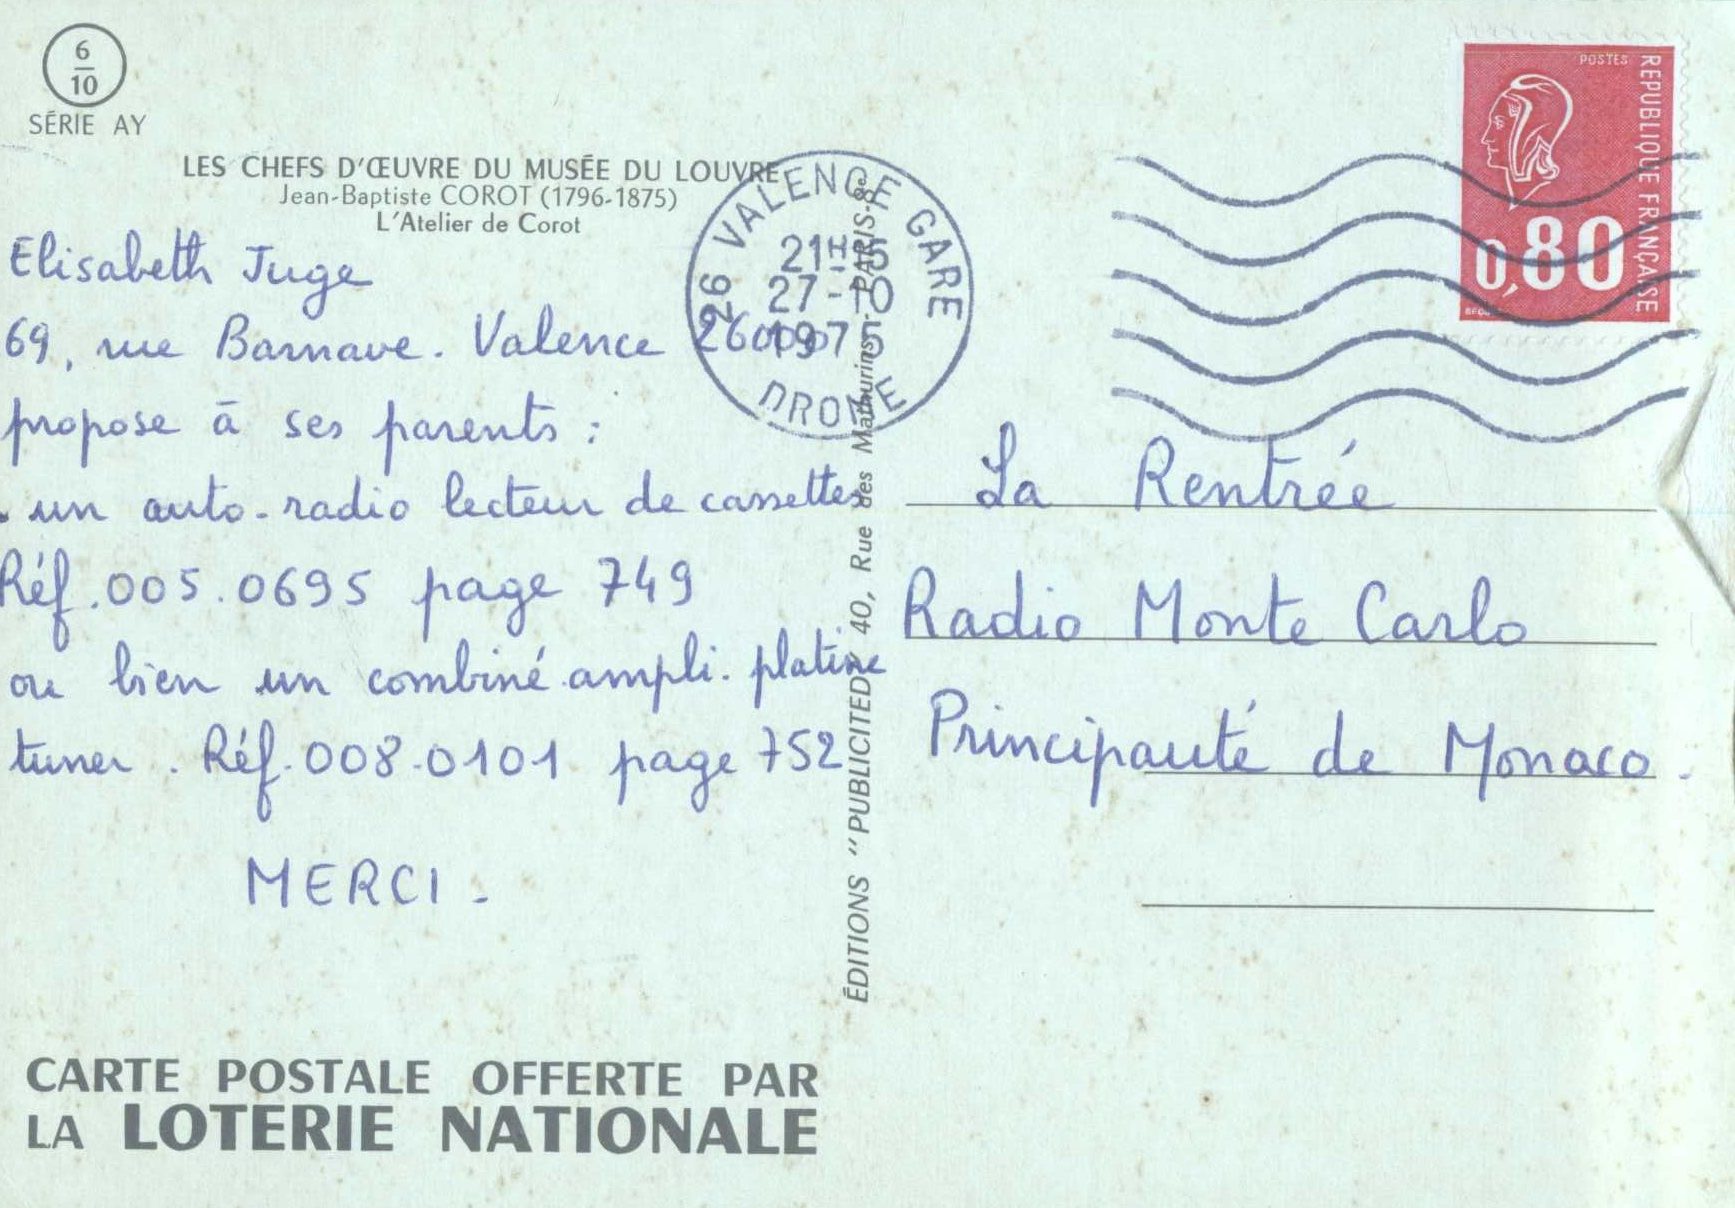 6
10
SÉRIE AY
LES CHEFS D'ŒUVRE DU MUSÉE DU LOUVRE
Jean-Baptiste COROT (1796-1875)
L'Atelier de Corot
Elisabeth Juge
69, rue Barnave. Valence 26000
propose à ses parents :
. un auto-radio lecteur de cassettes
Réf.005.0695 page 749
ou bien un combiné ampli. platine
tuner. Réf.008.0101 page 752
MERCI.
CARTE POSTALE OFFERTE PAR
LA LOTERIE NATIONALE
ÉDITIONS "PUBLICITED" 40, Rue des Mathurins - PARIS-8e
26 VALENCE GARE
21H15
27-10
1975
DROME
POSTES
REPUBLIQUE FRANÇAISE
0,80
La Rentrée
Radio Monte Carlo
Principauté de Monaco.